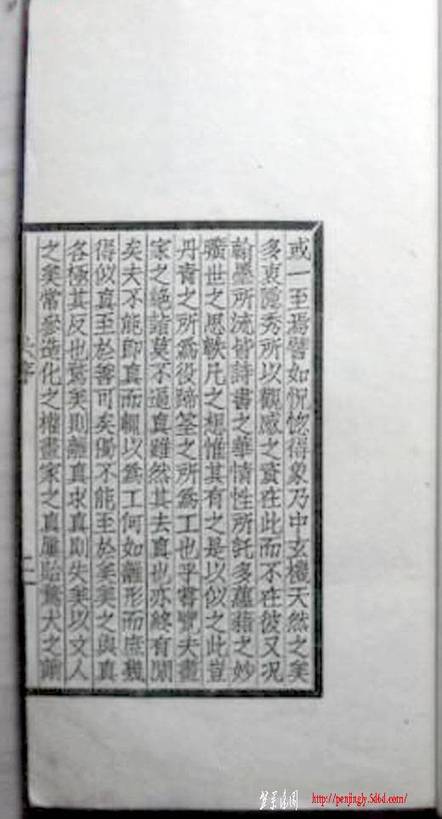 或一至焉譬如怳惚得象乃中玄機天然之美
多衷隱秀所以觀感之資在此而不在彼又况
翰墨所流皆詩書之華情性所託多蘊藉之妙
曠世之思軼凡之想惟其有之是以似之此豈
丹青之所爲役蹄筌之所爲工也乎嘗咒夫畫
家之絶詣莫不逼真雖然其去真也亦終有閒
矣夫不能即真而輒以爲工何如離形而庶幾
得似真至於善可矣獨不能至於美美之與真
各極其反也爲美則離真求真則失美以文人
之美常參造化之權畫家之真屢貽驚犬之誚
二
http://penjingly.5d6d.com/